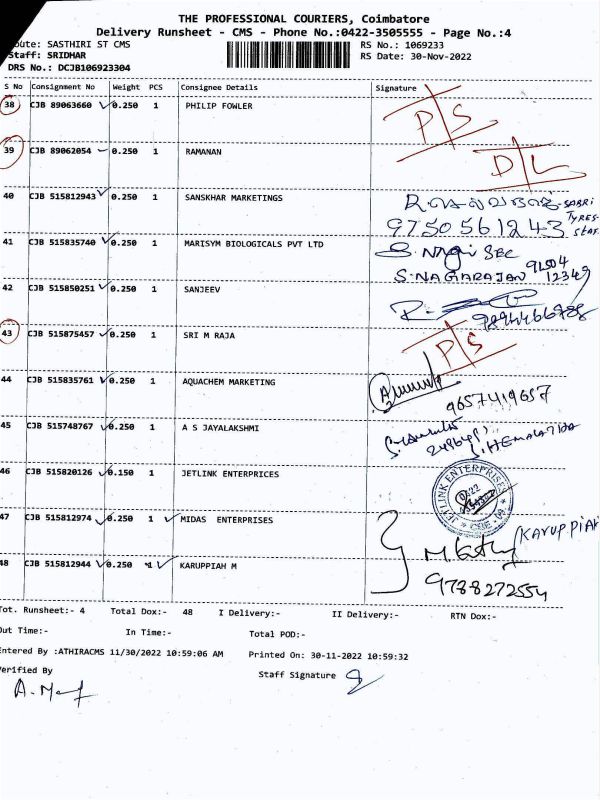 THE PROFESSIONAL COURIERS, Coimbatore
Delivery Runsheet - CMS - Phone No.:0422-3505555 - Page No.:4
oute: SASTHIRI ST CMS RS No.: 1069233
Staff: SRIDHAR RS Date: 30-Nov-2022
DRS No.: DCJB106923304
S No Consignment No Weight PCS Consignee Details Signature
38 CJB 89063660 0.250 1 PHILIP FOWLER P/S
39 CJB 89062054 0.250 1 RAMANAN D/L
40 CJB 515812943 0.250 1 SANSKHAR MARKETINGS
SABRI TYRES
9750561243
41 CJB 515835740 0.250 1 MARISYM BIOLOGICALS PVT LTD
S. Nagi SEC
S.NAGARAJAN 91504 12349
42 CJB 515850251 0.250 1 SANJEEV
9894466788
43 CJB 515875457 0.250 1 SRI M RAJA P/S
44 CJB 515835761 0.250 1 AQUACHEM MARKETING
9657419657
45 CJB 515748767 0.250 1 A S JAYALAKSHMI
S.HEMALATHA
46 CJB 515820126 0.150 1 JETLINK ENTERPRICES
JETLINK ENTERPRISES
47 CJB 515812974 0.250 1 MIDAS ENTERPRISES
(KARUPPIAH
48 CJB 515812944 0.250 1 KARUPPIAH M
9788272554
Tot. Runsheet:- 4 Total Dox:- 48 I Delivery:- II Delivery:- RTN Dox:-
Out Time:- In Time:- Total POD:-
Entered By :ATHIRACMS 11/30/2022 10:59:06 AM Printed On: 30-11-2022 10:59:32
Verified By Staff Signature